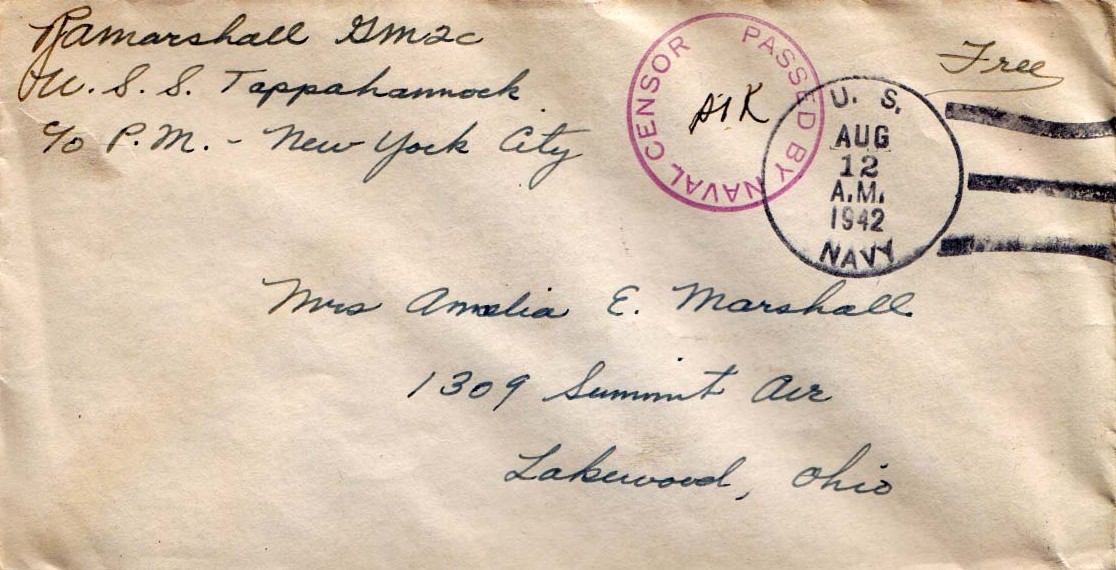 Ramarshall GM2c
U.S.S. Tappahannock
c/o P.M. - New York City
PASSED BY NAVAL CENSOR
Free
U. S.
AUG
12
A.M.
1942
NAVY
Mrs Amelia E. Marshall
1309 Summit Ave
Lakewood, Ohio